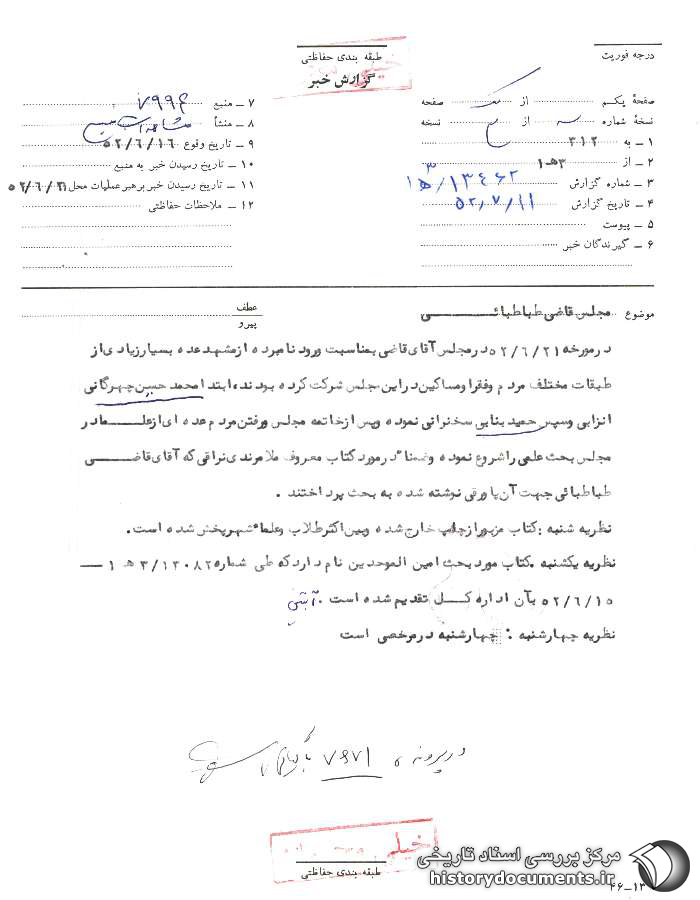 درجه فوریت
طبقه بندی حفاظتی
گزارش خبر
صفحهٔ یکم از یک صفحه
نسخهٔ شماره سه از نسخه
۱ – به ۳۱۲
۲ – از ۳ هـ ۱
۳ – شماره گزارش ۱۳۴۶۲ / ۳ ه‍ ۱
۴ – تاریخ گزارش ۵۲/۷/۱۱
۵ – پیوست
۶ – گیرندگان خبر
۷ – منبع ۷۹۹۴
۸ – منشأ
۹ – تاریخ وقوع ۵۲/۶/۱۶
۱۰ – تاریخ رسیدن خبر به منبع
۱۱ – تاریخ رسیدن خبر برهبر عملیات محل ۵۲/۶/۲۱
۱۲ – ملاحظات حفاظتی
موضوع مجلس قاضی طباطبائی
عطف
پیرو
در مورخه ۵۲/۶/۲۱ در مجلس آقای قاضی بمناسبت ورود نامبرده از مشهد عده بسیار زیادی از
طبقات مختلف مردم وفقرا ومساکین در این مجلس شرکت کرده بودند، ابتدا محمد حسین چهرگانی
انزابی وسپس حمید بنابی سخنرانی نموده وپس از خاتمه مجلس ورفتن مردم عده ای از علماء در
مجلس بحث علمی را شروع نموده وضمنا" در مورد کتاب معروف ملا مهدی نراقی که آقای قاضی
طباطبائی جهت آن پاورقی نوشته شده به بحث پرداختند .
نظریه شنبه : کتاب مزبور از چاپ خارج شده وبین اکثر طلاب وعلماء شهر پخش شده است.
نظریه یکشنبه . کتاب مورد بحث امین الموحدین نام دارد که طی شماره ۱۳۰۸۲/ ۳ هـ ۱ —
۵۲/۶/۱۵ بآن اداره کل تقدیم شده است .
نظریه چهارشنبه : چهارشنبه در مرخصی است
در پرونده ۷۶۷۱
خیلی
طبقه بندی حفاظتی
۱۲–۴۶
مرکز بررسی اسناد تاریخی
historydocuments.ir